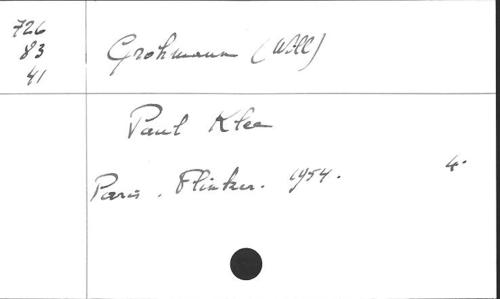 726
83
41
Grohmann (Will)
Paul Klee
Paris. Flinker. 1954.
4°